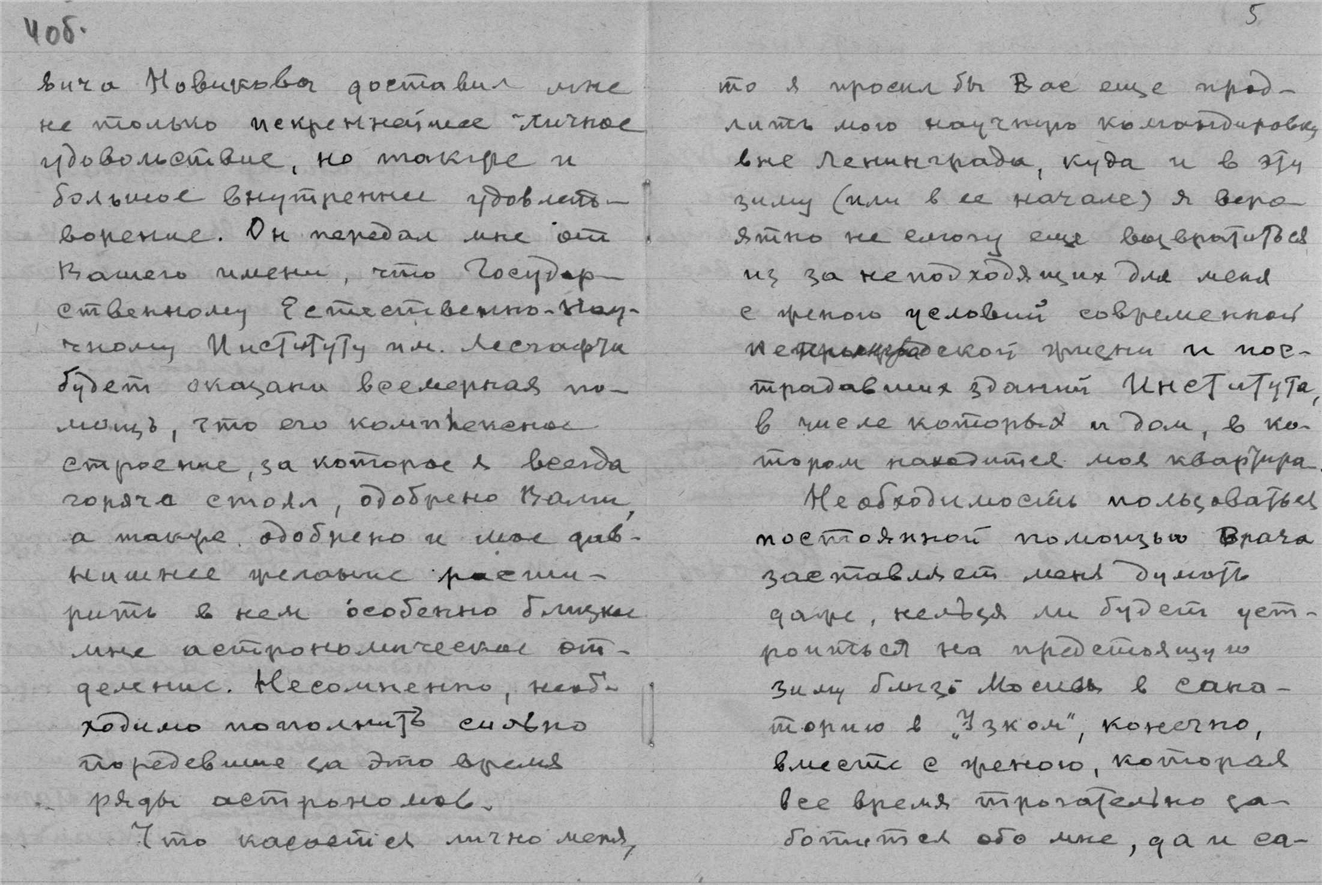 4 об.
вича Новикова доставил мне
не только искреннейшее личное
удовольствие, но также и
большое внутреннее удовлет-
ворение. Он передал мне от
Вашего имени, что Государ-
ственному Естественно-Нау-
чному Институту им. Лесгафта
будет оказана всемерная по-
мощь, что его комплексное
строение, за которое я всегда
горячо стоял, одобрено Вами,
а также одобрено и мое дав-
нишнее желание расши-
рить в нем особенно близкое
мне астрономическое от-
деление. Несомненно, необ-
ходимо пополнить сильно
поредевшие за это время
ряды астрономов.
Что касается лично меня,
5
то я просил бы Вас еще прод-
лить мою научную командировку
вне Ленинграда, куда и в эту
зиму (или в ее начале) я веро-
ятно не смогу еще возвратиться
из за неподходящих для меня
с женою условий современной
ской жизни и пос-
традавших зданий Института,
в числе которых и дом, в ко-
тором находится моя квартира.
Необходимость пользоваться
постоянной помощью врача
заставляет меня думать
даже, нельзя ли будет уст-
роиться на предстоящую
зиму близь Москвы в сана-
торию в „Узком“, конечно,
вместе с женою, которая
все время трогательно за-
ботится обо мне, да и са-